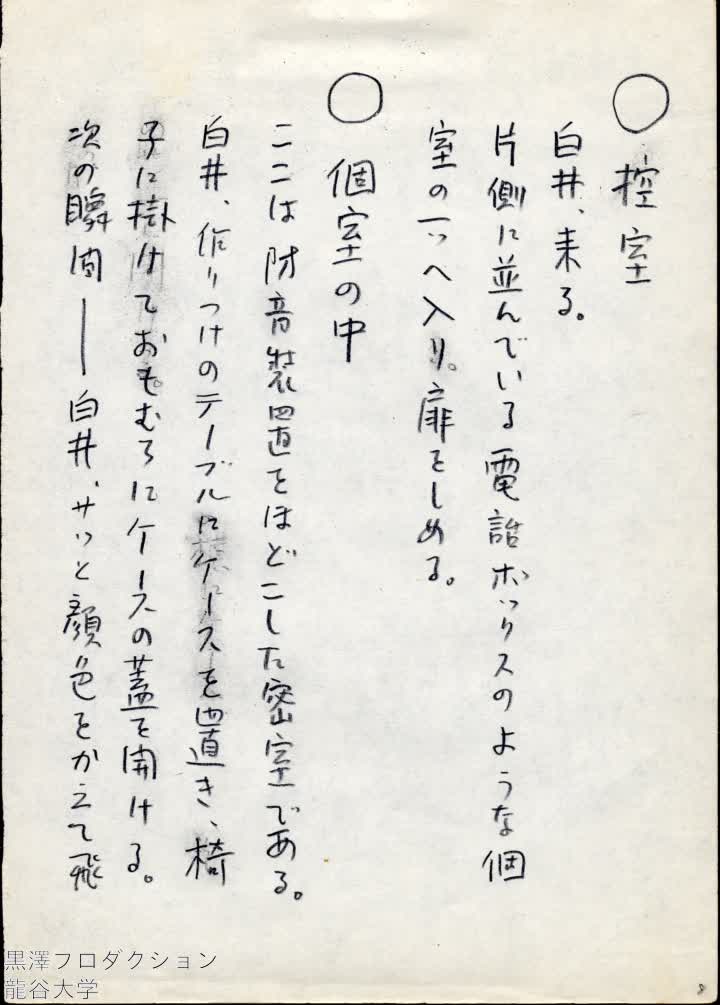 ○ 控室
白井、来る。
片側に並んでいる電話ボックスのような個
室の一つへ入り、扉をしめる。
○ 個室の中
ここは防音装置をほどこした密室である。
白井、作りつけのテーブルにケースを置き、椅
子に掛けておもむろにケースの蓋を開ける。
次の瞬間―白井、サッと顔色をかえて飛
黒澤プロダクション
龍谷大学
8